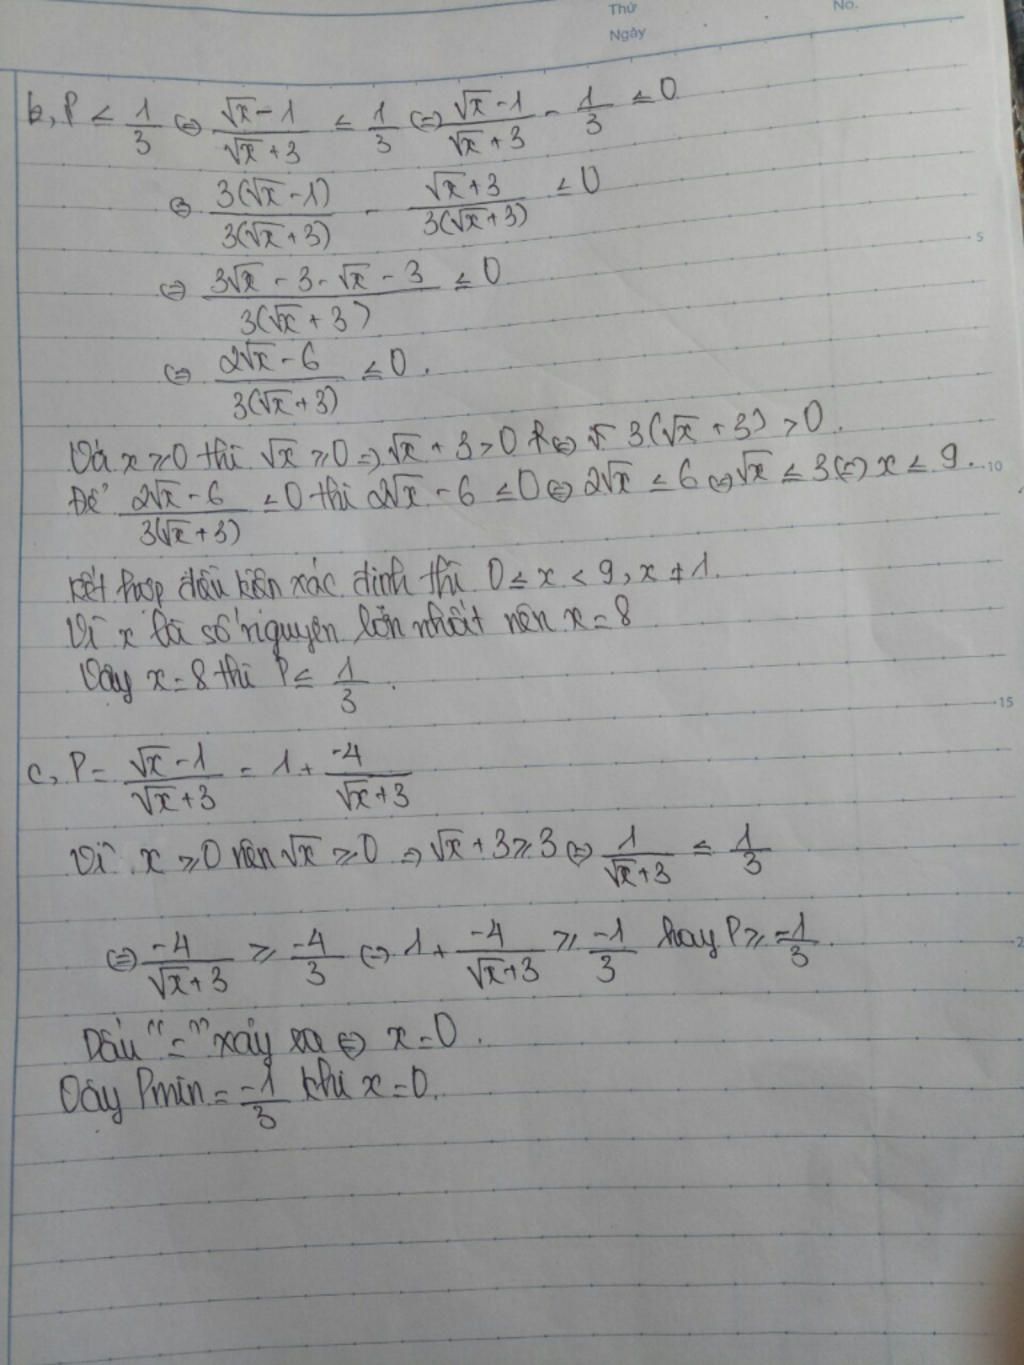 Thứ
No.
Ngày
b, P ≤ 1/3 ⇔ (√x - 1)/(√x + 3) ≤ 1/3 ⇔ (√x - 1)/(√x + 3) - 1/3 ≤ 0
⇔ 3(√x - 1)/3(√x + 3) - (√x + 3)/3(√x + 3) ≤ 0
5
⇔ (3√x - 3 - √x - 3)/3(√x + 3) ≤ 0
⇔ (2√x - 6)/3(√x + 3) ≤ 0.
Với x ≥ 0 thì √x ≥ 0 ⇒ √x + 3 > 0 ⇔ 3(√x + 3) > 0.
Để (2√x - 6)/3(√x + 3) ≤ 0 thì 2√x - 6 ≤ 0 ⇔ 2√x ≤ 6 ⇔ √x ≤ 3 ⇔ x ≤ 9.
10
Kết hợp điều kiện xác định thì 0 ≤ x < 9, x ≠ 1.
Vì x là số nguyên lớn nhất nên x = 8
Vậy x = 8 thì P ≤ 1/3.
15
c, P = (√x - 1)/(√x + 3) = 1 + -4/(√x + 3)
Vì x ≥ 0 nên √x ≥ 0 ⇒ √x + 3 ≥ 3 ⇔ 1/(√x + 3) ≤ 1/3
⇔ -4/(√x + 3) ≥ -4/3 ⇔ 1 + -4/(√x + 3) ≥ -1/3 hay P ≥ -1/3.
Dấu "=" xảy ra ⇔ x = 0.
Vậy Pmin = -1/3 khi x = 0.